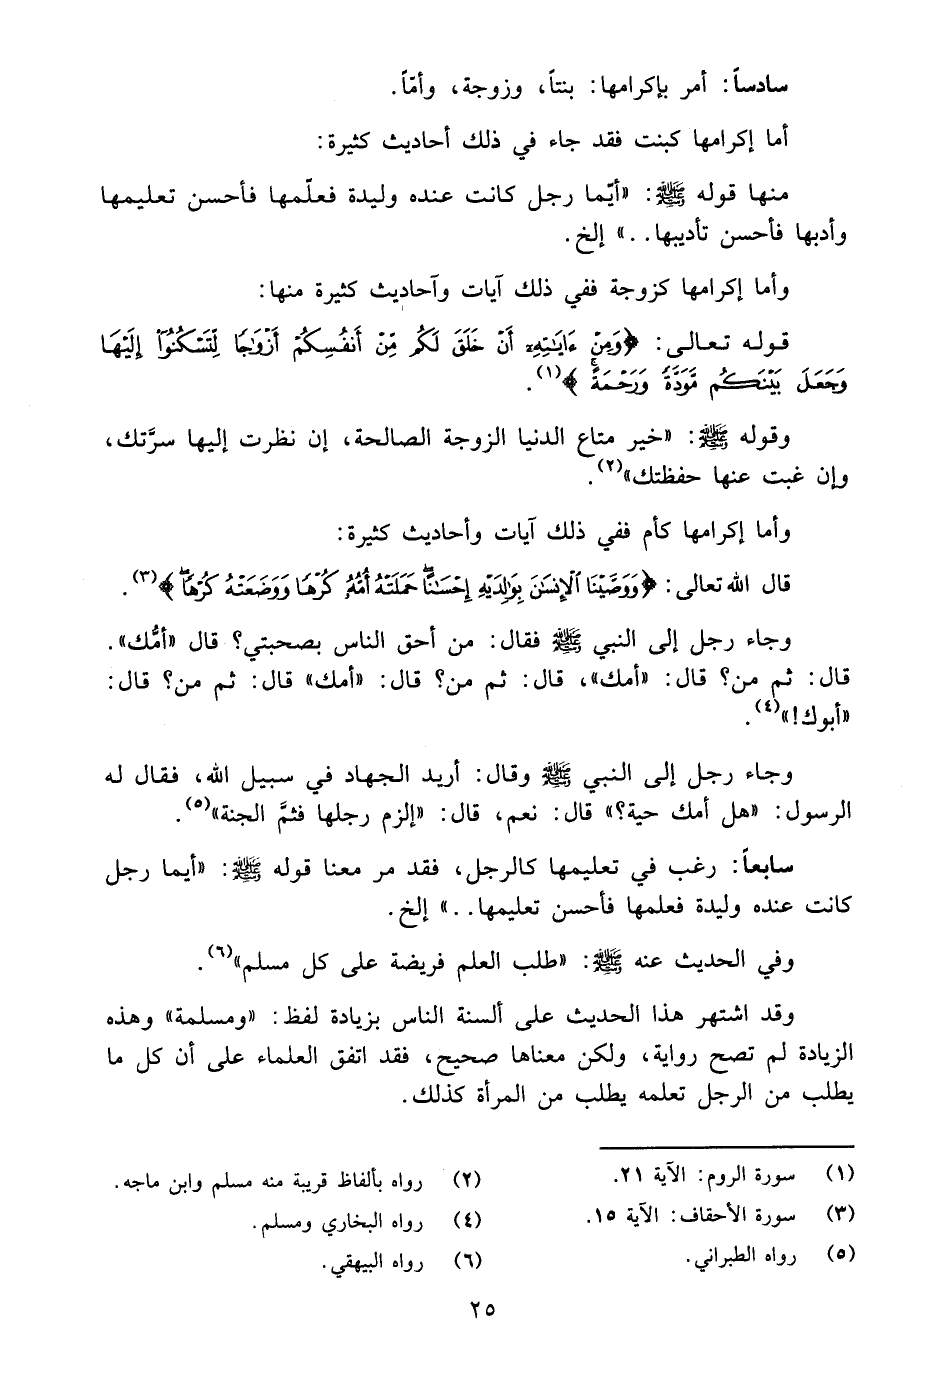 سادساً: أمر بإكرامها: بنتاً، وزوجة، وأمّاً.
أما إكرامها كبنت فقد جاء في ذلك أحاديث كثيرة:
منها قوله ﷺ: «أيّما رجل كانت عنده وليدة فعلّمها فأحسن تعليمها
وأدبها فأحسن تأديبها..» إلخ.
وأما إكرامها كزوجة ففي ذلك آيات وآحاديث كثيرة منها:
قوله تعالى: ﴿وَمِنْ ءَايَٰتِهِۦٓ أَنْ خَلَقَ لَكُم مِّنْ أَنفُسِكُمْ أَزْوَٰجًا لِّتَسْكُنُوٓا۟ إِلَيْهَا
وَجَعَلَ بَيْنَكُم مَّوَدَّةً وَرَحْمَةً ۚ﴾(١).
وقوله ﷺ: «خير متاع الدنيا الزوجة الصالحة، إن نظرت إليها سرَّتك،
وإن غبت عنها حفظتك»(٢).
وأما إكرامها كأم ففي ذلك آيات وأحاديث كثيرة:
قال الله تعالى: ﴿وَوَصَّيْنَا ٱلْإِنسَٰنَ بِوَٰلِدَيْهِ إِحْسَٰنًا ۖ حَمَلَتْهُ أُمُّهُۥ كُرْهًا وَوَضَعَتْهُ كُرْهًا ۖ﴾(٣).
وجاء رجل إلى النبي ﷺ فقال: من أحق الناس بصحبتي؟ قال «أمُّك».
قال: ثم من؟ قال: «أمك»، قال: ثم من؟ قال: «أمك» قال: ثم من؟ قال:
«أبوك!»(٤).
وجاء رجل إلى النبي ﷺ وقال: أريد الجهاد في سبيل الله، فقال له
الرسول: «هل أمك حية؟» قال: نعم، قال: «إلزم رجلها فثمَّ الجنة»(٥).
سابعاً: رغب في تعليمها كالرجل، فقد مر معنا قوله ﷺ: «أيما رجل
كانت عنده وليدة فعلمها فأحسن تعليمها..» إلخ.
وفي الحديث عنه ﷺ: «طلب العلم فريضة على كل مسلم»(٦).
وقد اشتهر هذا الحديث على ألسنة الناس بزيادة لفظ: «ومسلمة» وهذه
الزيادة لم تصح رواية، ولكن معناها صحيح، فقد اتفق العلماء على أن كل ما
يطلب من الرجل تعلمه يطلب من المرأة كذلك.
(١) سورة الروم: الآية ٢١.
(٢) رواه بألفاظ قريبة منه مسلم وابن ماجه.
(٣) سورة الأحقاف: الآية ١٥.
(٤) رواه البخاري ومسلم.
(٥) رواه الطبراني.
(٦) رواه البيهقي.
٢٥